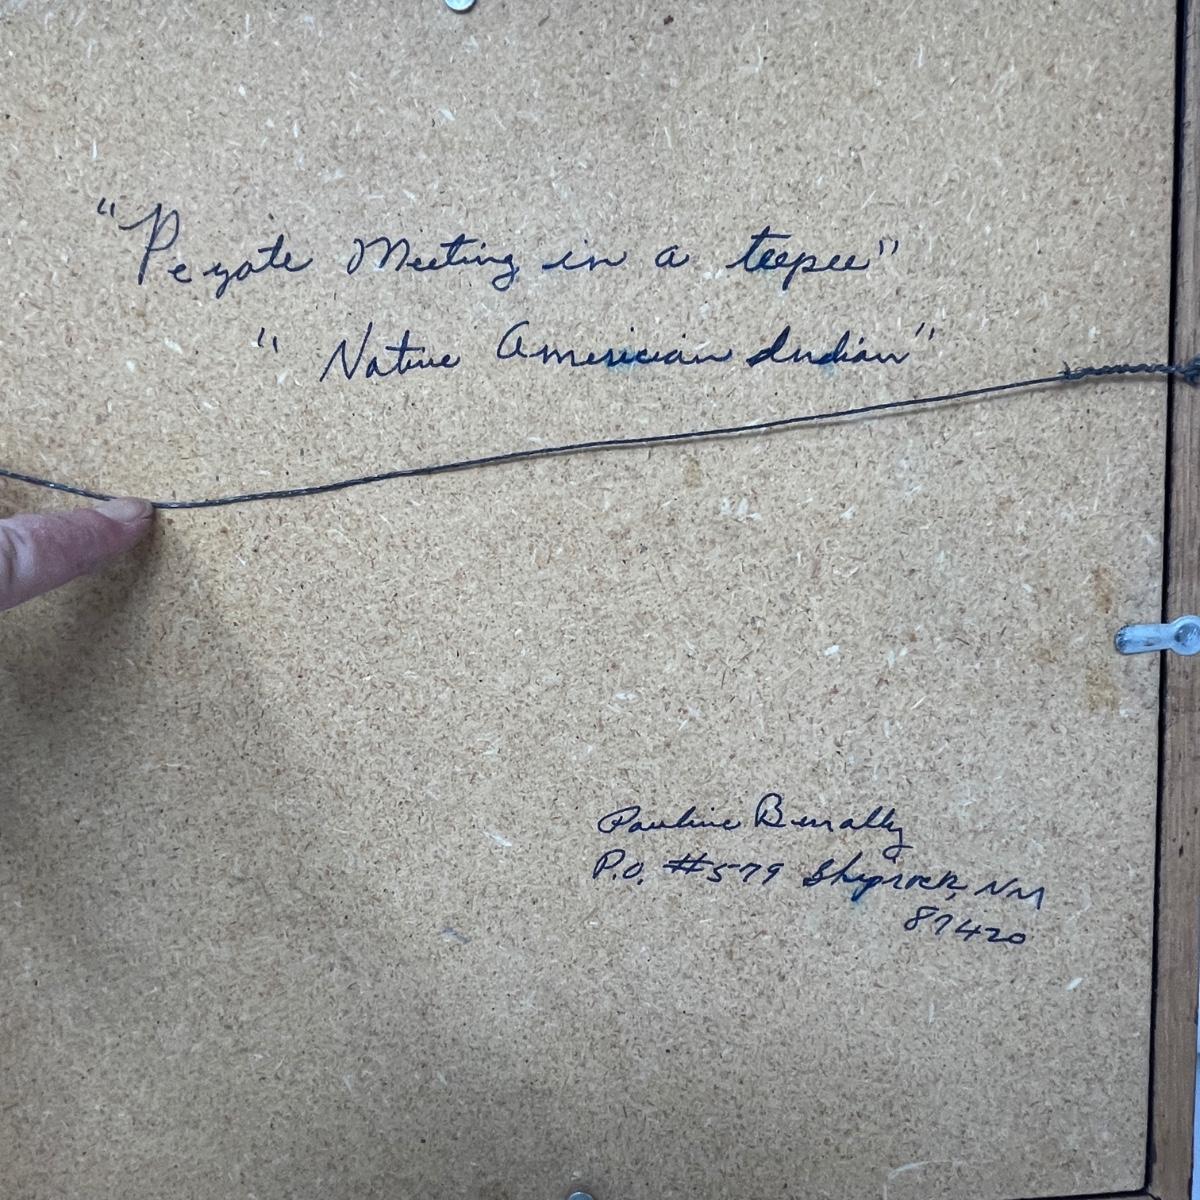 "Peyote Meeting in a teepee"
"Native American Indian"
Pauline Benally
P.O. #579 Shiprock, NM
87420